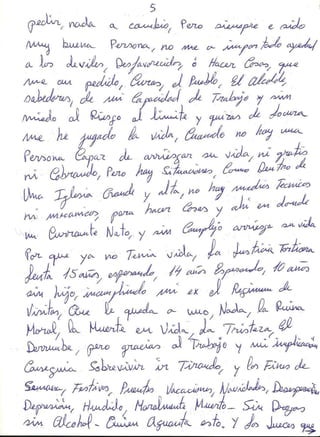 5
pedir, nada a cambio, Pero siempre e sido
muy buena Persona, no me a importado ayudar
a los deviles, Desfavorecidos, ó Hacer Cosas, que
me an pedido, Curas, el Pueblo, El Alcalde,
sabedores, de mi Capacidad de Trabajo y sin
miedo al Riesgo al limite y quizas de locura
me he jugado la vida, Cuando no hay una
Persona Capaz de arriesgar su vida, ni gratis
ni Cobrando, Pero hay Situaciones, Como Dentro de
Una Iglesia Grande y alta, no hay medios Tecnicos
ni mecanicos, para hacer Cosas y ahi en donde
un Currante Nato, y sin Complejo arriesga su vida
Por que ya no Tenia vida, La Justicia Tortuosa
Lenta 15 años, esperando, 14 años Esperando, 10 años
sin hijo, incumpliendo mi ex el Regimen de
Visitas, Que le queda a uno, Nada, La Ruina
Moral, La Muerte en Vida, da Tristeza, El
Derrumbe, pero gracias al Trabajo y mi implicación
Conseguia Sobrevivir ir Tirando, y los Fines de
Semana, Festivos, Puentes Vacaciones, Navidades, Desesperación
Depresión, Hundido, Moralmente Muerto - Sin Drogas
sin Alcohol - Quien Aguanta esto. Y los Jueces que